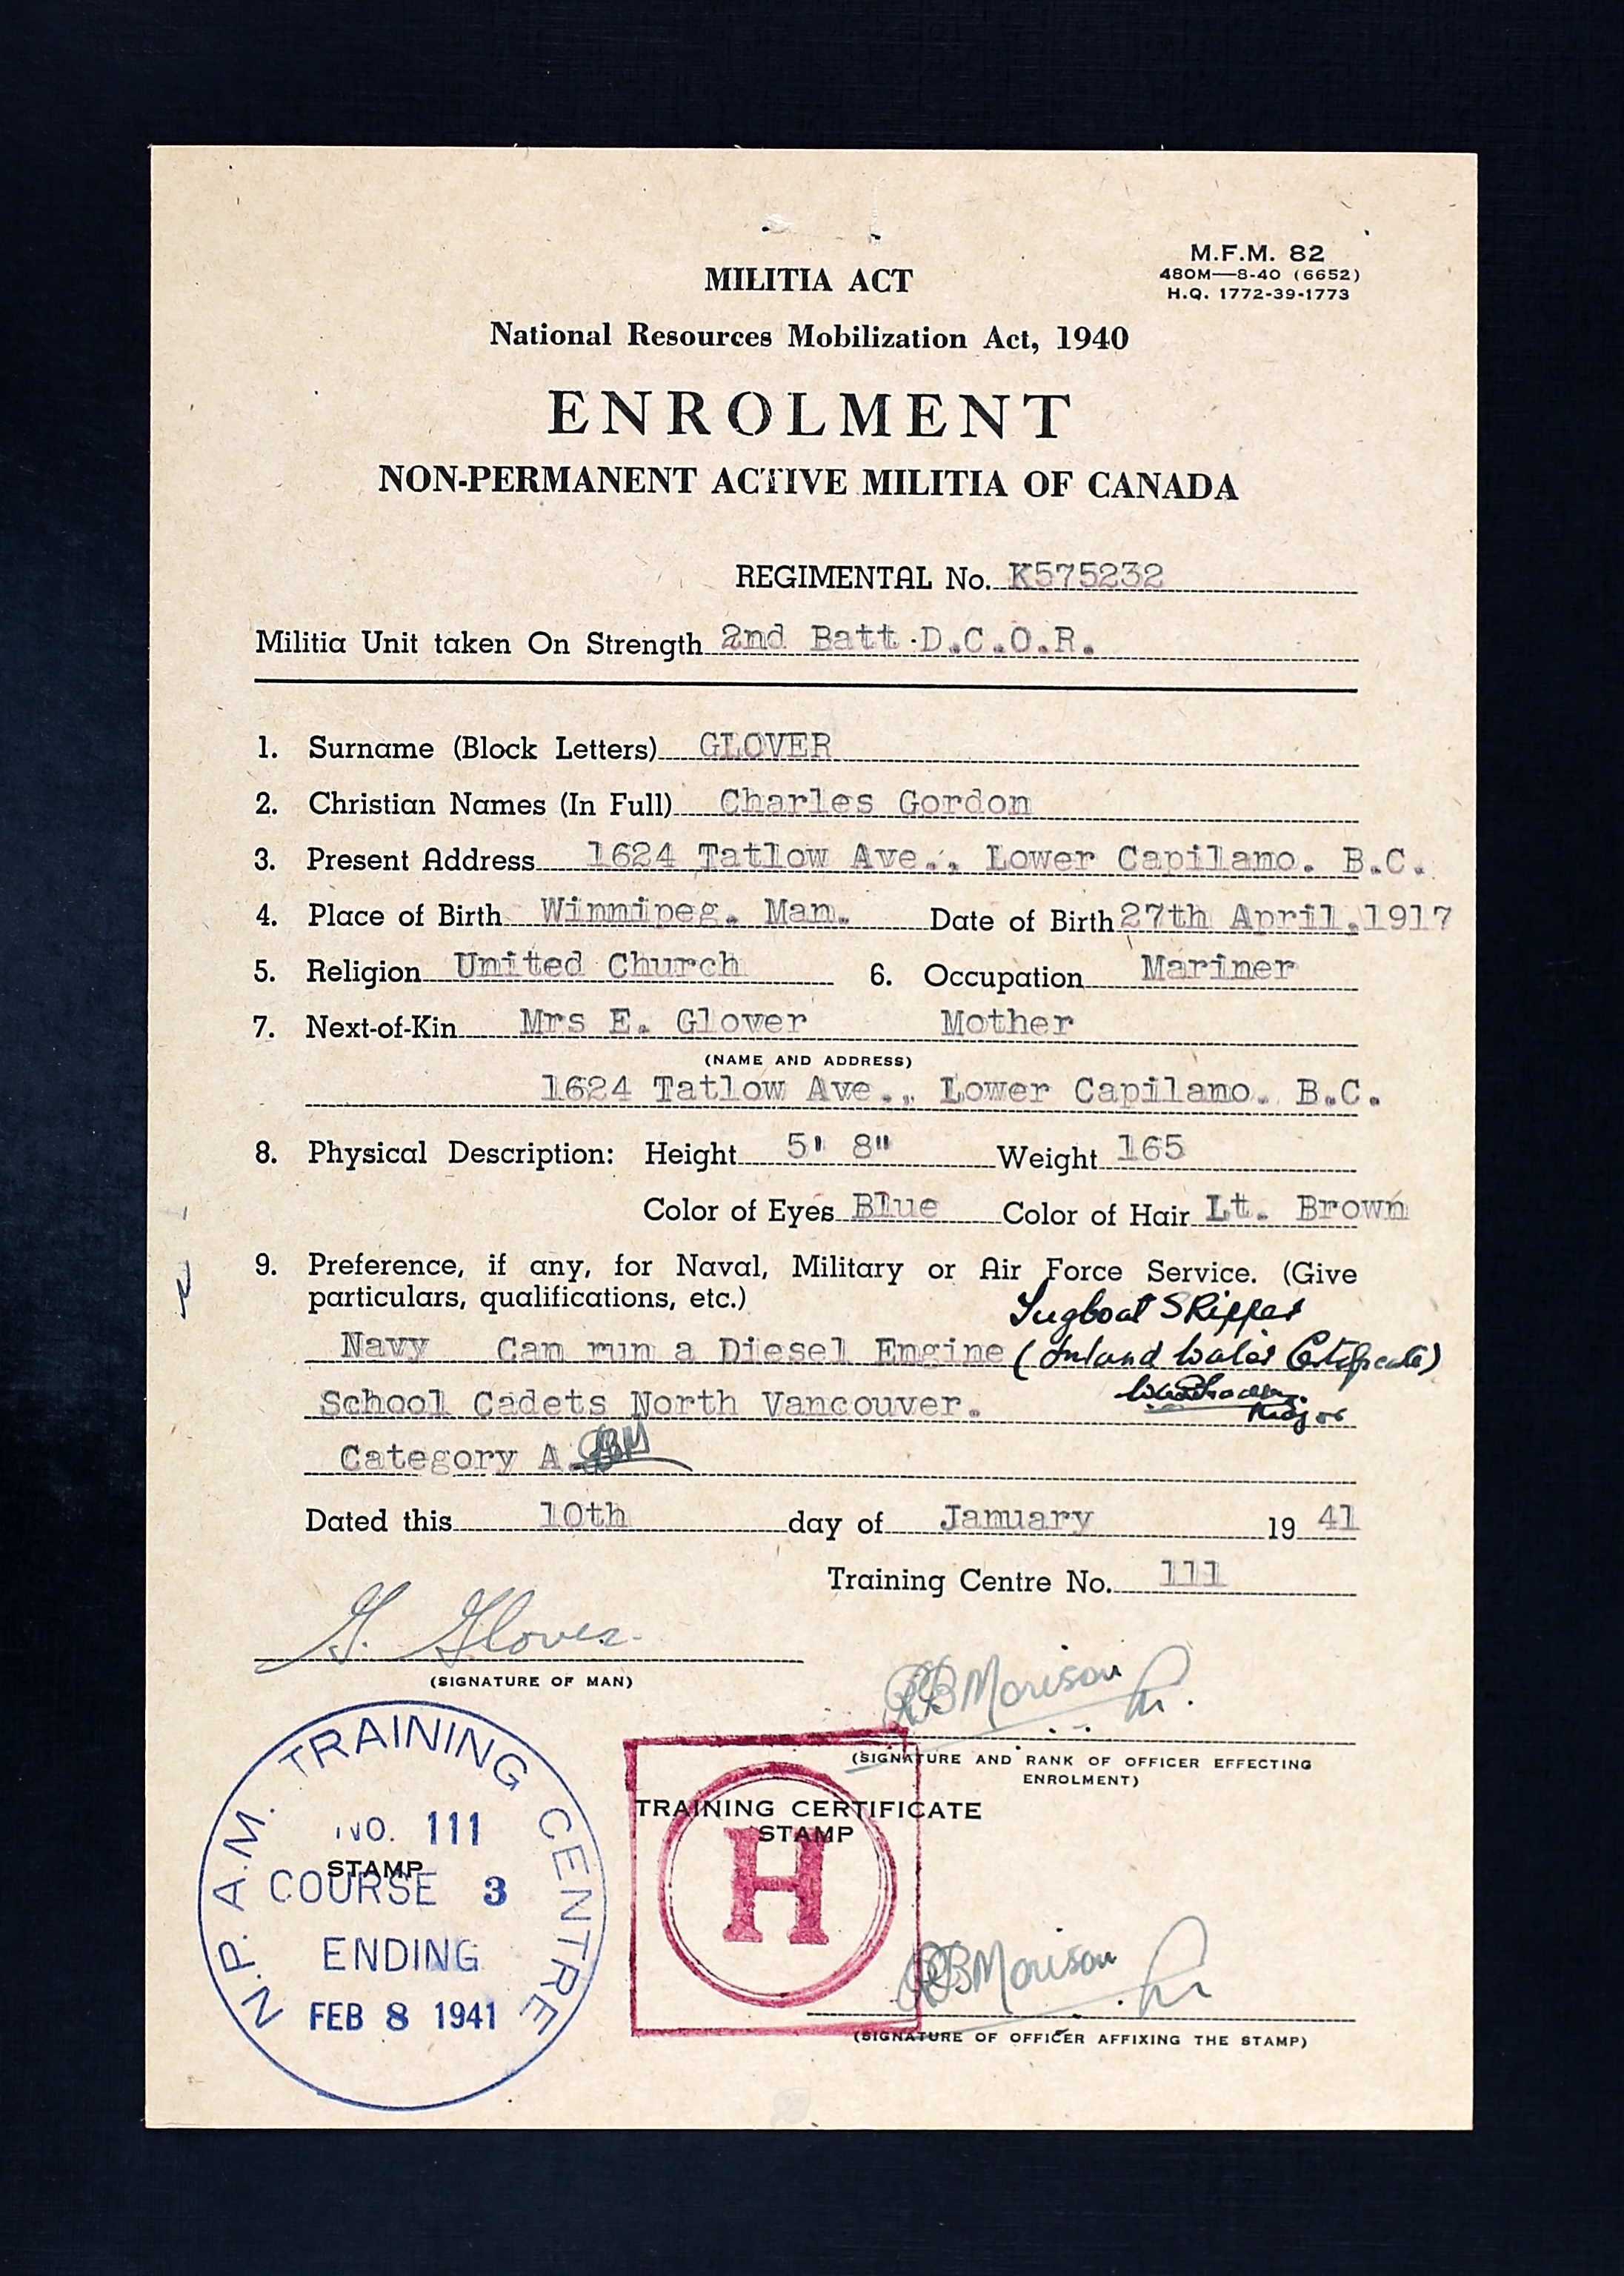 M.F.M. 82
480M—8-40 (6652)
H.Q. 1772-39-1773
MILITIA ACT
National Resources Mobilization Act, 1940
ENROLMENT
NON-PERMANENT ACTIVE MILITIA OF CANADA
REGIMENTAL No. K575232
Militia Unit taken On Strength 2nd Batt D.C.O.R.
1. Surname (Block Letters) GLOVER
2. Christian Names (In Full) Charles Gordon
3. Present Address 1624 Tatlow Ave., Lower Capilano. B.C.
4. Place of Birth Winnipeg. Man. Date of Birth 27th April.1917
5. Religion United Church 6. Occupation Mariner
7. Next-of-Kin Mrs E. Glover Mother
(NAME AND ADDRESS)
1624 Tatlow Ave., Lower Capilano. B.C.
8. Physical Description: Height 5' 8" Weight 165
Color of Eyes Blue Color of Hair Lt. Brown
9. Preference, if any, for Naval, Military or Air Force Service. (Give
particulars, qualifications, etc.)
Tugboat Skipper
Navy Can run a Diesel Engine (Inland Water Certificate)
School Cadets North Vancouver.
Major
Category A. RBM
Dated this 10th day of January 19 41
Training Centre No. 111
G. Glover
(SIGNATURE OF MAN)
RB Morison
(SIGNATURE AND RANK OF OFFICER EFFECTING
ENROLMENT)
N.P.A.M. TRAINING CENTRE
NO. 111
STAMP
COURSE 3
ENDING
FEB 8 1941
TRAINING CERTIFICATE
STAMP
H
RB Morison
(SIGNATURE OF OFFICER AFFIXING THE STAMP)